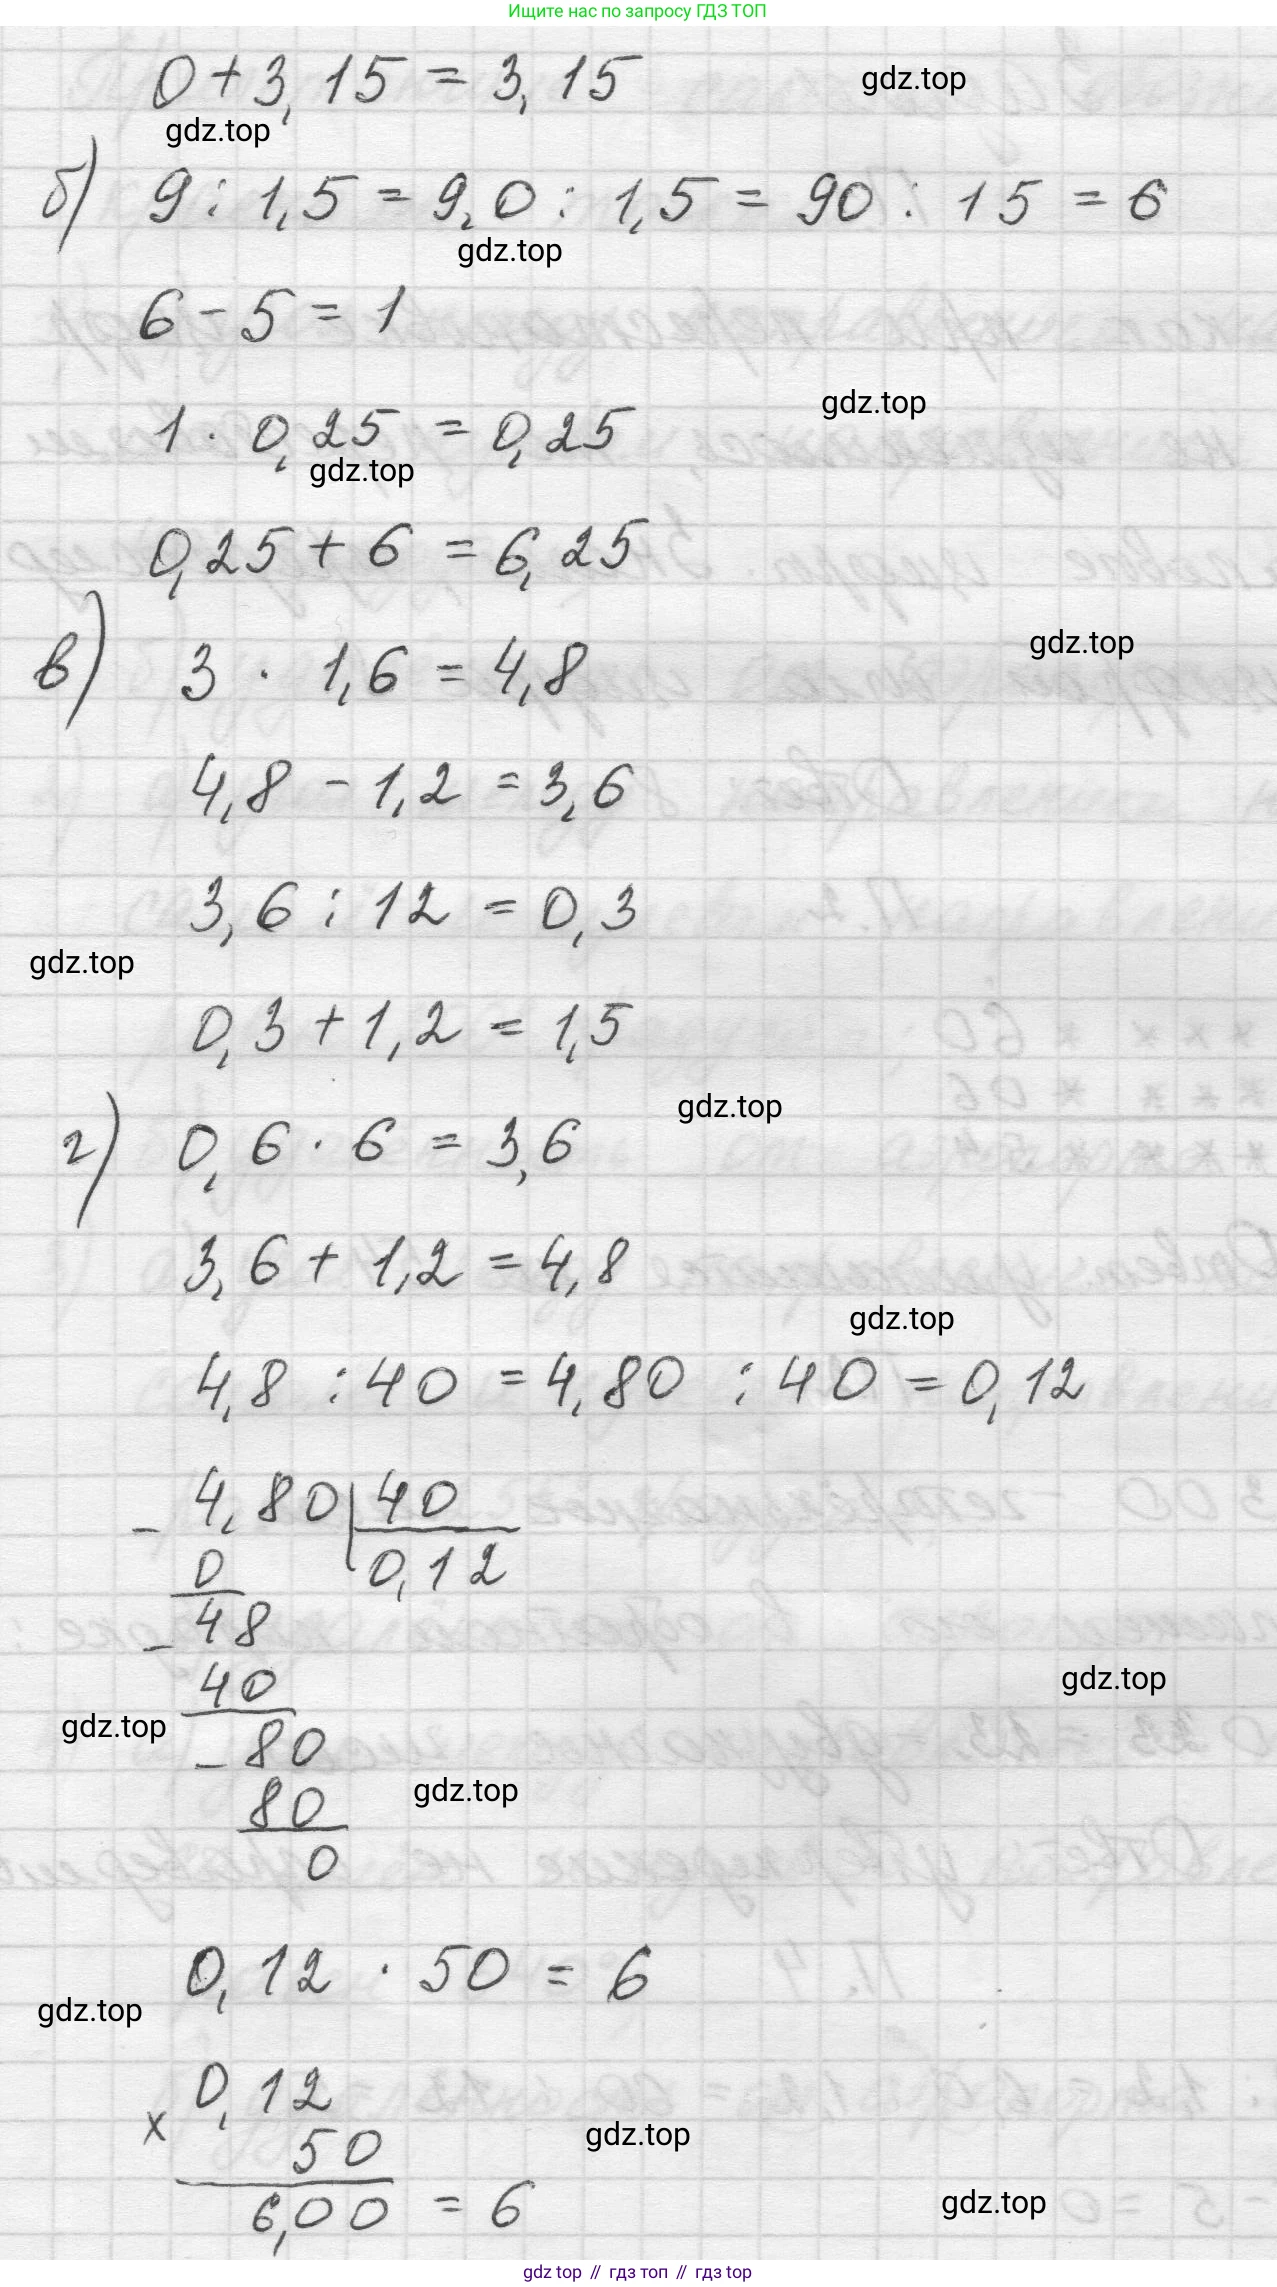 Ищите нас по запросу ГДЗ ТОП
0 + 3,15 = 3,15
gdz.top
gdz.top
б) 9 : 1,5 = 9,0 : 1,5 = 90 : 15 = 6
gdz.top
6 - 5 = 1
gdz.top
1 · 0,25 = 0,25
gdz.top
0,25 + 6 = 6,25
gdz.top
в) 3 · 1,6 = 4,8
4,8 - 1,2 = 3,6
3,6 : 12 = 0,3
gdz.top
0,3 + 1,2 = 1,5
gdz.top
г) 0,6 · 6 = 3,6
3,6 + 1,2 = 4,8
gdz.top
4,8 : 40 = 4,80 : 40 = 0,12
- 4,80 | 40
0 0,12
- 48
40
gdz.top
gdz.top
- 80
gdz.top
80
0
0,12 · 50 = 6
gdz.top
0,12
×
50
gdz.top
6,00 = 6
gdz.top
gdz top // гдз топ // gdz top